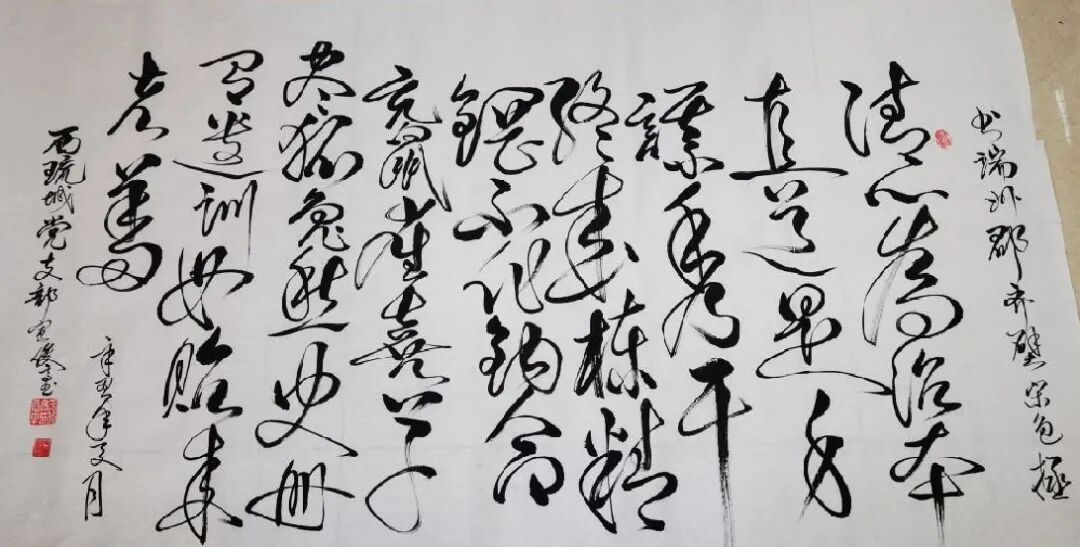 书端州郡斋壁 宋包拯
清心为治本
直道是身
謀秀干
终成栋精
鋼不作钩仓
充鼠雀喜草
尽狐兔愁史册
有遗训毋贻来
者羞
辛丑年夏月
西琉城党支部